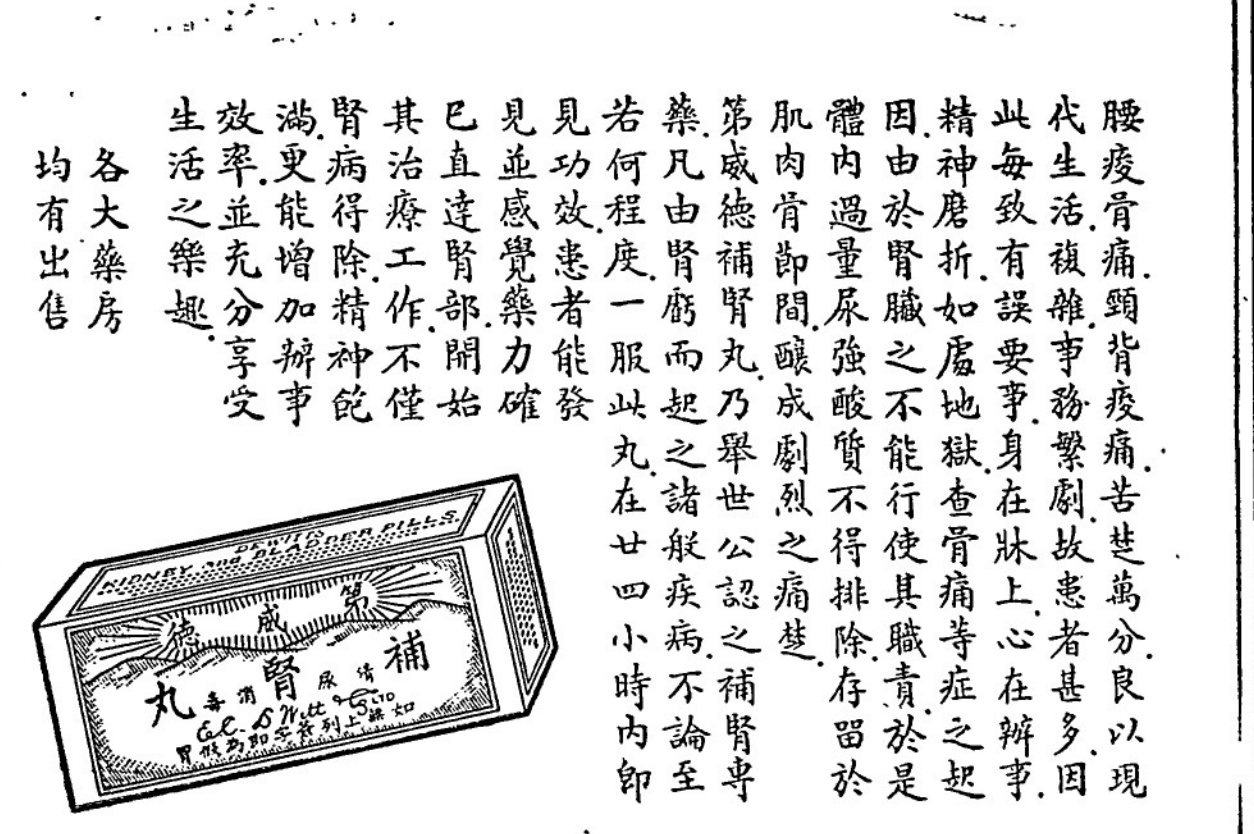 腰痠骨痛.頸背痠痛.苦楚萬分.良以現
代生活.複雜.事務繁劇.故患者甚多.因
此每致有誤要事.身在牀上.心在辦事.
精神磨折.如處地獄.查骨痛等症之起
因.由於腎臟之不能行使其職責.於是
體內過量尿強酸質不得排除.存留於
肌肉骨節間.釀成劇烈之痛楚.
第威德補腎丸.乃舉世公認之補腎專
藥.凡由腎虧而起之諸般疾病.不論至
若何程度.一服此丸.在廿四小時內即
見功效.患者能發
見並感覺藥力確
已直達腎部.開始
其治療工作.不僅
腎病得除.精神飽
滿.更能增加辦事
效率.並充分享受
生活之樂趣.
各大藥房
均有出售
DEWITT'S
KIDNEY and BLADDER PILLS
第威德
補腎丸
清尿消毒
E.C. De Witt & Co LTD
如無上列簽字即為假冒